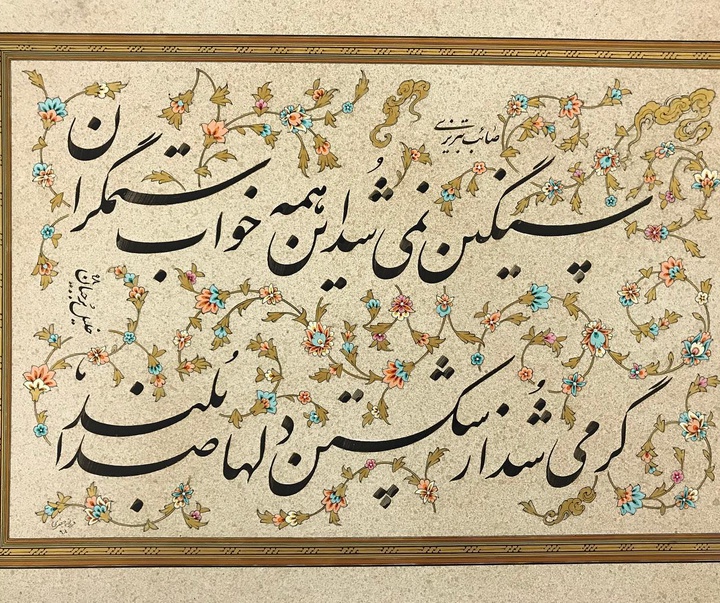 صائب تبریزی
سنگین نمی شد این همه خواب ستمگران
گر می شد از شکستن دلها صدا بلند